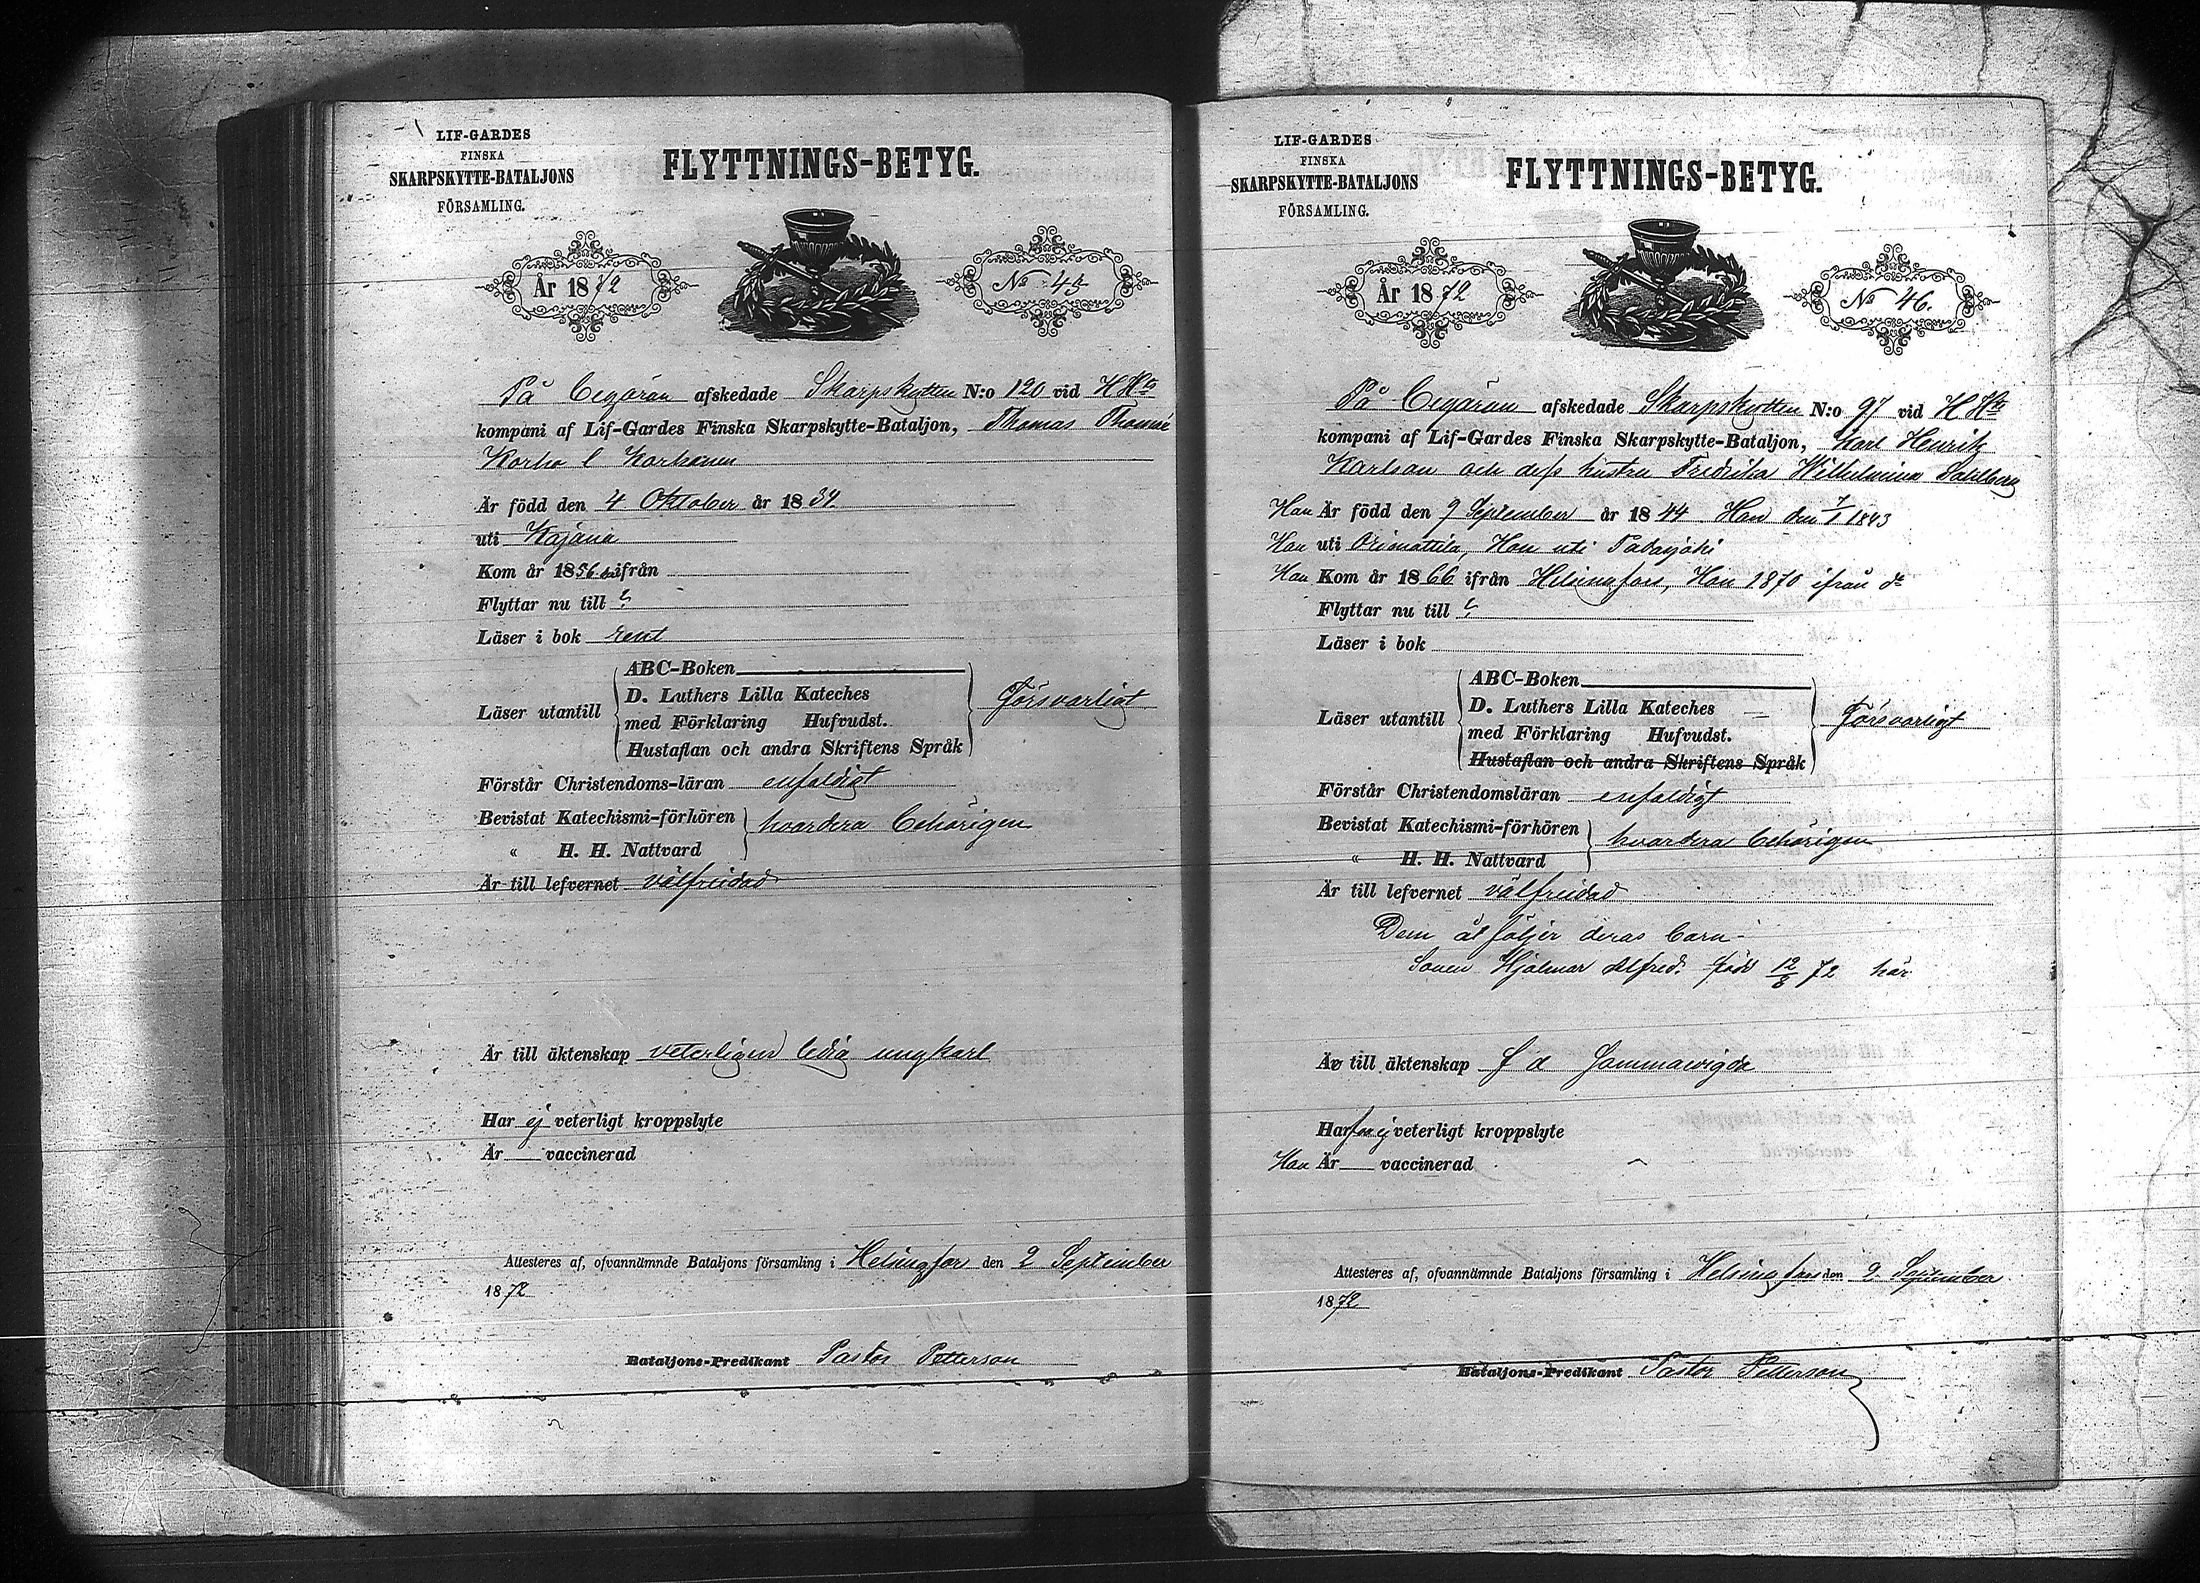 LIF-GARDES
FINSKA
SKARPSKYTTE-BATALJONS
FÖRSAMLING.
FLYTTNINGS-BETYG.
År 1872
No 45
På begäran afskedade Skarpskytten N:o 120 vid H Hts
kompani af Lif-Gardes Finska Skarpskytte-Bataljon, Thomas
Korho l Korhonen
Är född den 4 Oktober år 1834.
uti Kajana
Kom år 1856 ifrån
Flyttar nu till ?
Läser i bok rent
Läser utantill
ABC-Boken
D. Luthers Lilla Kateches
med Förklaring Hufvudst.
Hustaflan och andra Skriftens Språk
Försvarligt
Förstår Christendoms-läran enfaldigt
Bevistat Katechismi-förhören
" H. H. Nattvard
hvardera behörigen
Är till lefvernet välfreidad
Är till äktenskap veterligen ledig ungkarl
Har ej veterligt kroppslyte
Är vaccinerad
Attesteres af, ofvannämnde Bataljons församling i Helsingfors den 2 September
1872
Bataljons-Predikant Pastor Petterson
LIF-GARDES
FINSKA
SKARPSKYTTE-BATALJONS
FÖRSAMLING.
FLYTTNINGS-BETYG.
År 1872
No 46.
På begäran afskedade Skarpskytten N:o 97 vid H Hts
kompani af Lif-Gardes Finska Skarpskytte-Bataljon, Karl Henrik
Karlson och dess hustru Fredrika Wilhelmina Sahlberg
Han Är född den 9 September år 1844 Hon den 7/1 1843
Han uti Orimattila, Hon uti Padasjoki
Han Kom år 1866 ifrån Helsingfors, Hon 1870 ifrån do
Flyttar nu till ?
Läser i bok
Läser utantill
ABC-Boken
D. Luthers Lilla Kateches
med Förklaring Hufvudst.
Hustaflan och andra Skriftens Språk
Försvarligt
Förstår Christendomsläran enfaldigt
Bevistat Katechismi-förhören
" H. H. Nattvard
hvardera behörigen
Är till lefvernet välfreidad
Dem åtföljer deras barn
Sonen Hjalmar Alfred född 12/8 72 här
Är till äktenskap f d Sammanvigda
Har ej veterligt kroppslyte
Han Är vaccinerad
Attesteres af, ofvannämnde Bataljons församling i Helsingfors den 9 September
1872
Bataljons-Predikant Pastor Petterson